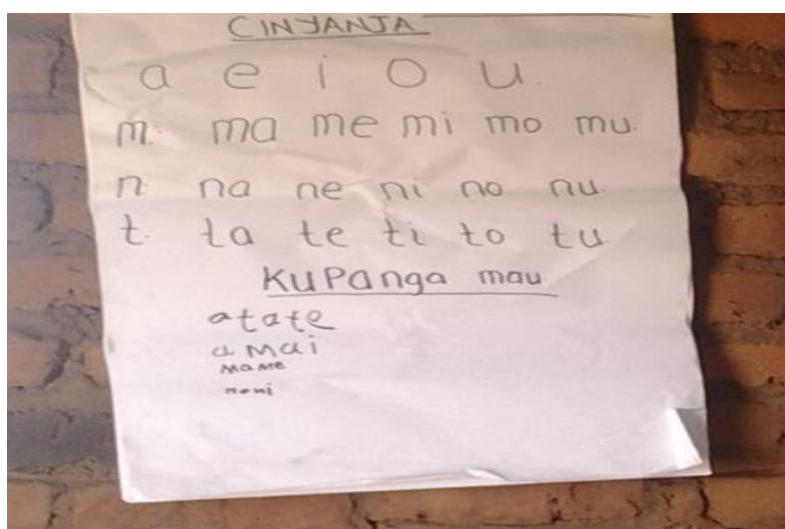 CINYANJA
a e i o u.
m. ma me mi mo mu.
n. na ne ni no nu.
t. ta te ti to tu.
KuPanga mau
atate
a Mai
MaMe